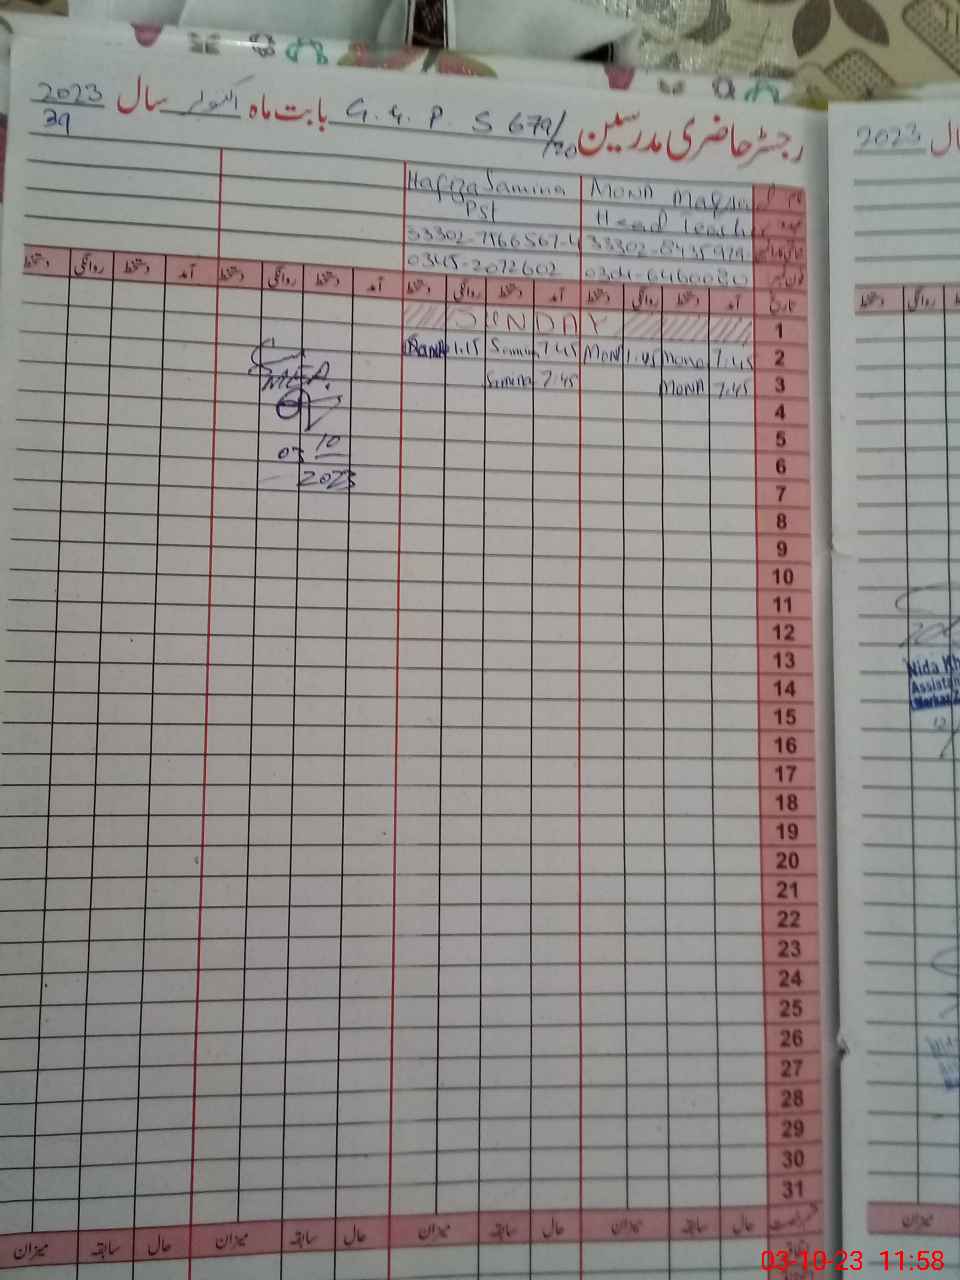 رجسٹر حاضری مدرسین G. G. P. S 679/20 بابت ماہ اکتوبر سال 2023
39
نام Mona Hafiza Samina
عہدہ Head Teacher Pst
33302-7566567-4
0345-2072602
تاریخ آمد دستخط روانگی دستخط آمد دستخط روانگی دستخط آمد دستخط روانگی دستخط آمد دستخط روانگی دستخط
1 SUNDAY
2 7.45 Mona 1.45 Mona 7.45 Samina 1.15
3 7.45 Mona 7.45 Samina
4
5
6
7
8
9
10
11
12
13
14
15
16
17
18
19
20
21
22
23
24
25
26
27
28
29
30
31
حال سابقہ میزان حال سابقہ میزان حال سابقہ میزان حال سابقہ میزان
MEA
03 10
2023
2023
دستخط روانگی
Nida Kh
Assistan
میزان
03-10-23 11:58